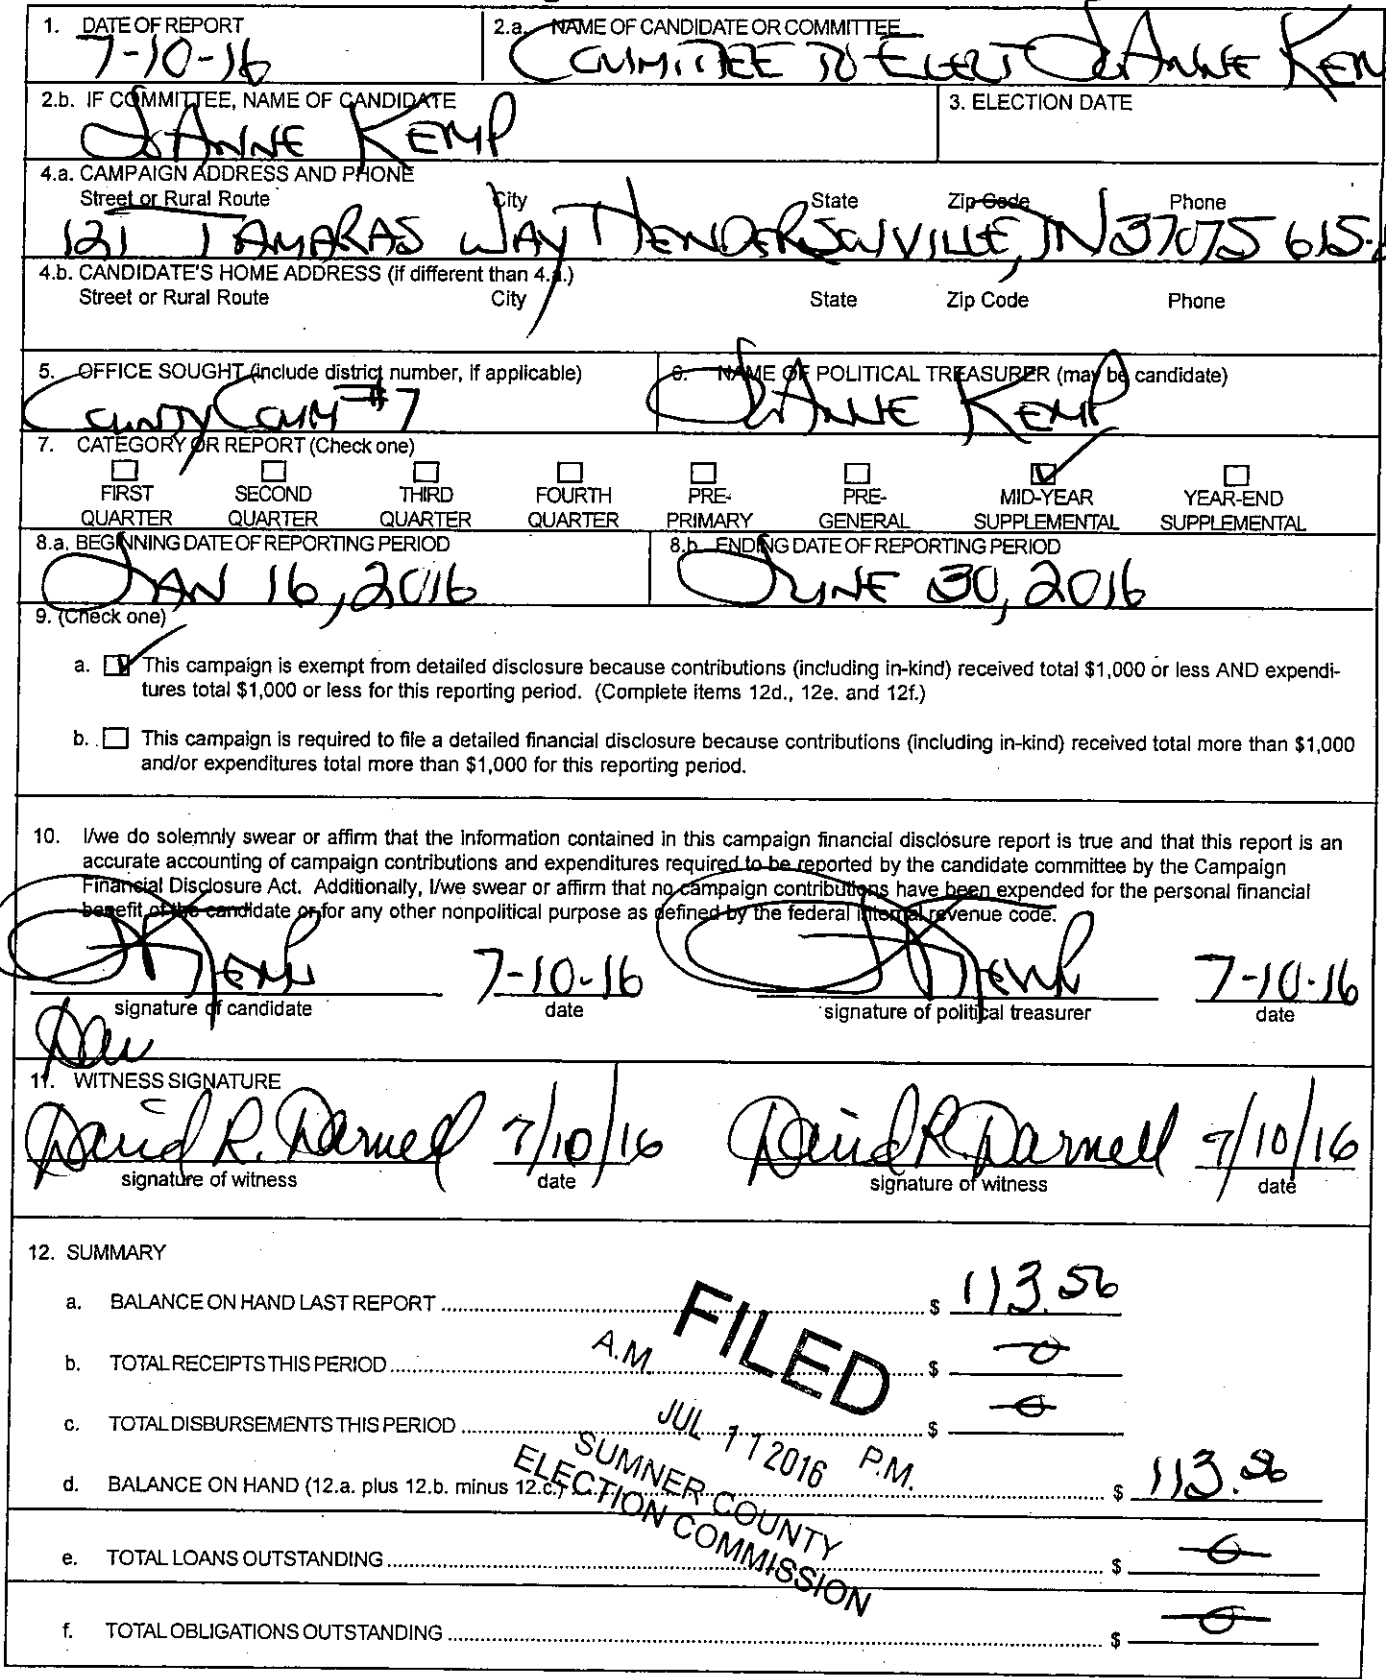 1. DATE OF REPORT 2.a. NAME OF CANDIDATE OR COMMITTEE
7-10-16 COMMITTEE TO ELECT JOANNE KEM
2.b. IF COMMITTEE, NAME OF CANDIDATE 3. ELECTION DATE
JOANNE KEMP
4.a. CAMPAIGN ADDRESS AND PHONE
Street or Rural Route City State Zip Code Phone
121 TAMARAS WAY HENDERSONVILLE, TN 37075 615-
4.b. CANDIDATE'S HOME ADDRESS (if different than 4.a.)
Street or Rural Route City State Zip Code Phone
5. OFFICE SOUGHT (include district number, if applicable) 6. NAME OF POLITICAL TREASURER (may be candidate)
COUNTY COMM #7 JOANNE KEMP
7. CATEGORY OR REPORT (Check one)
FIRST SECOND THIRD FOURTH PRE- PRE- MID-YEAR YEAR-END
QUARTER QUARTER QUARTER QUARTER PRIMARY GENERAL SUPPLEMENTAL SUPPLEMENTAL
8.a. BEGINNING DATE OF REPORTING PERIOD 8.b. ENDING DATE OF REPORTING PERIOD
JAN 16, 2016 JUNE 30, 2016
9. (Check one)
a. This campaign is exempt from detailed disclosure because contributions (including in-kind) received total $1,000 or less AND expendi-
tures total $1,000 or less for this reporting period. (Complete items 12d., 12e. and 12f.)
b. This campaign is required to file a detailed financial disclosure because contributions (including in-kind) received total more than $1,000
and/or expenditures total more than $1,000 for this reporting period.
10. I/we do solemnly swear or affirm that the information contained in this campaign financial disclosure report is true and that this report is an
accurate accounting of campaign contributions and expenditures required to be reported by the candidate committee by the Campaign
Financial Disclosure Act. Additionally, I/we swear or affirm that no campaign contributions have been expended for the personal financial
benefit of the candidate or for any other nonpolitical purpose as defined by the federal internal revenue code.
Kemp 7-10-16 Kemp 7-10-16
signature of candidate date signature of political treasurer date
Dav
11. WITNESS SIGNATURE
David R. Darnell 7/10/16 David R. Darnell 7/10/16
signature of witness date signature of witness date
12. SUMMARY
a. BALANCE ON HAND LAST REPORT $ 113.56
b. TOTAL RECEIPTS THIS PERIOD $ 0
c. TOTAL DISBURSEMENTS THIS PERIOD $ 0
d. BALANCE ON HAND (12.a. plus 12.b. minus 12.c.) $ 113.56
e. TOTAL LOANS OUTSTANDING $ 0
f. TOTAL OBLIGATIONS OUTSTANDING $ 0
FILED
A.M. JUL 11 2016 P.M.
SUMNER COUNTY
ELECTION COMMISSION